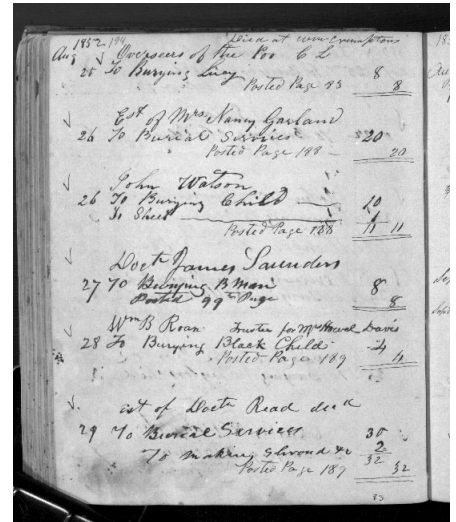 1852 194 Died at Wm Cramptons
Aug Overseers of the Poor C L
25 To Burying Lucy 8
Posted Page 83 8
Est of Mrs Nancy Garland
26 To Burial Services 20
Posted Page 188 20
John Watson
26 To Burying Child 10
To Sheet 1
Posted Page 188 11 11
Doctr James Saunders
27 To Burying B Man 8
Posted 99th Page 8
Wm B Roan Trustee for Mrs Davis
28 To Burying Black Child 4
Posted Page 189 4
est of Doctr Read decd
29 To Burial Services 30
To making Shroud &c 2
32
Posted Page 189 32
83